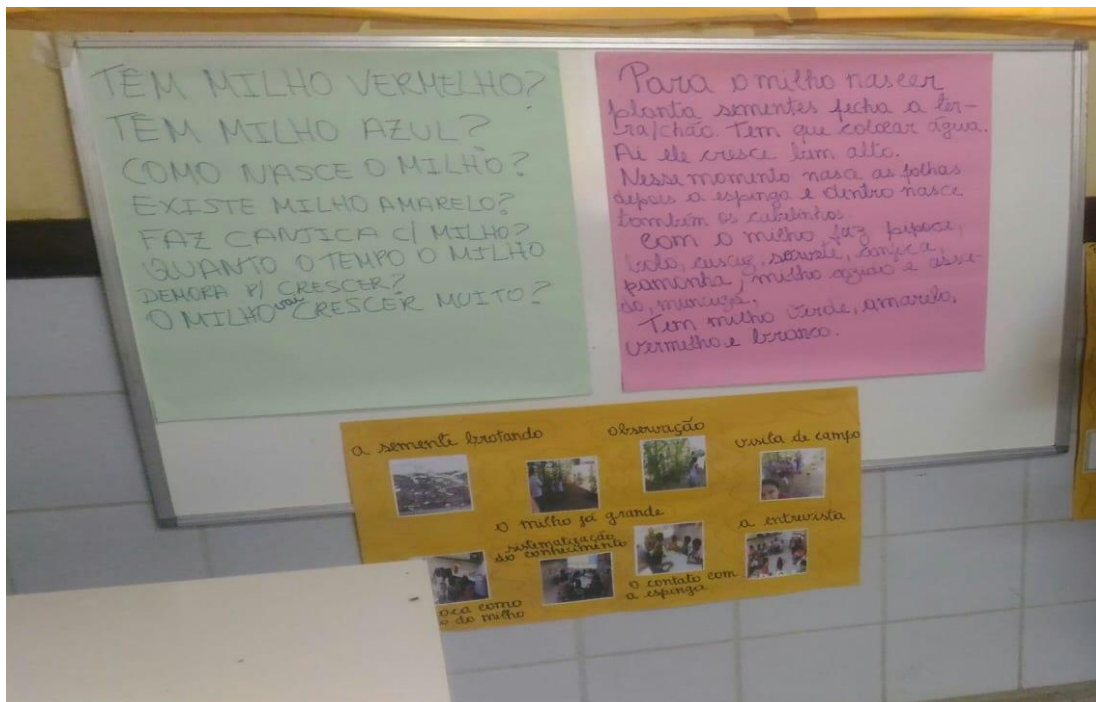 TÊM MILHO VERMELHO?
TÊM MILHO AZUL?
COMO NASCE O MILHO?
EXISTE MILHO AMARELO?
FAZ CANJICA C/ MILHO?
QUANTO O TEMPO O MILHO
DEMORA P/ CRESCER?
O MILHO vai CRESCER MUITO?
Para o milho nascer
planta sementes fecha a ter-
ra/chão. Tem que colocar água.
Ai ele cresce bem alto.
Nesse momento nasce as folhas
depois a espinga e dentro nasce
também os cabelinhos.
Com o milho faz pipoca,
bolo, cuscuz, sorvete, canjica,
pamonha, milho cozido e assa-
do, munguzá,
Tem milho verde, amarelo,
vermelho e branco.
a semente brotando
observação
visita de campo
o milho já grande
sistematização
do conhecimento
a entrevista
o contato com
a espinga
oca como
o do milho